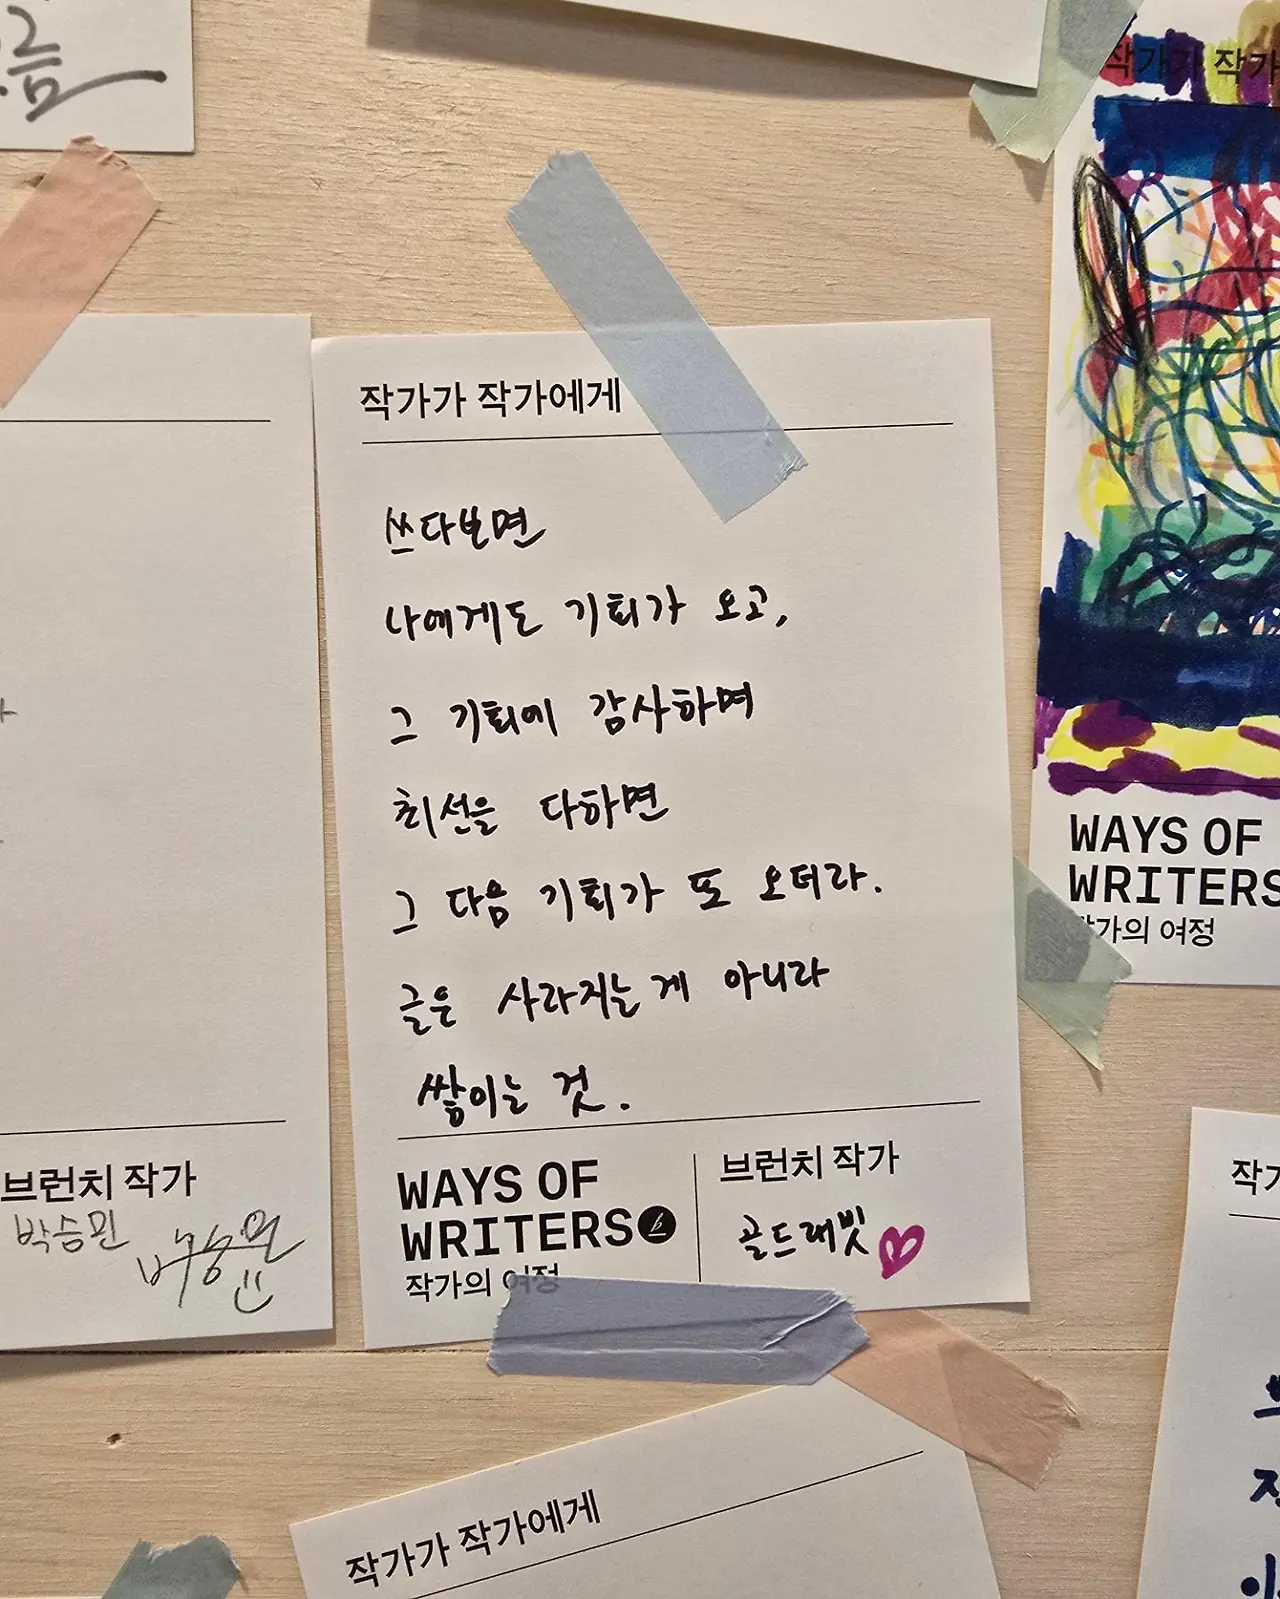 작가가 작가에게
쓰다보면
나에게도 기회가 오고,
그 기회에 감사하며
최선을 다하면
그 다음 기회가 또 오더라.
글은 사라지는 게 아니라
쌓이는 것.
WAYS OF
WRITERS
작가의 여정
브런치 작가
골드래빗
브런치 작가
박승민
작가가 작가
WAYS OF
WRITERS
작가의 여정
작가가 작가에게